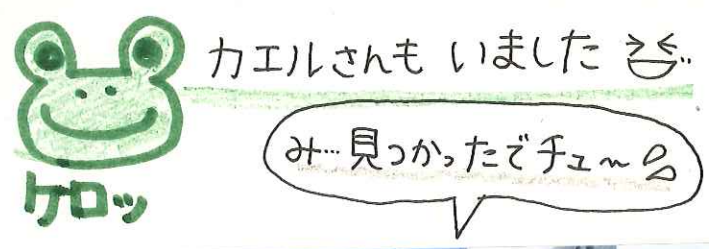 カエルさんも いました
み…見つかったでチュ～
ケロッ